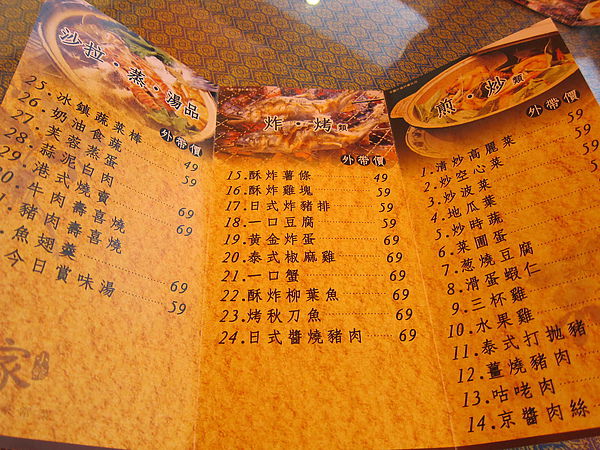 沙拉・蒸・湯品
外帶價
25.冰鎮蔬菜棒
26.奶油食蔬 49
27.芙蓉蒸蛋 59
28.蒜泥白肉
29.港式燒賣 69
30.牛肉壽喜燒
豬肉壽喜燒
魚翅羹 69
今日賞味湯 59
家
炸・烤類
外帶價
15.酥炸薯條 49
16.酥炸雞塊 59
17.日式炸豬排 59
18.一口豆腐
19.黃金炸蛋 69
20.泰式椒麻雞 69
21.一口蟹
22.酥炸柳葉魚 69
23.烤秋刀魚 69
24.日式醬燒豬肉 69
煎・炒類
外帶價
1.清炒高麗菜 59
2.炒空心菜 59
3.炒波菜 59
4.地瓜葉
5.炒時蔬
6.菜圃蛋
7.蔥燒豆腐
8.滑蛋蝦仁
9.三杯雞
10.水果雞
11.泰式打拋豬
12.薑燒豬肉
13.咕咾肉
14.京醬肉絲